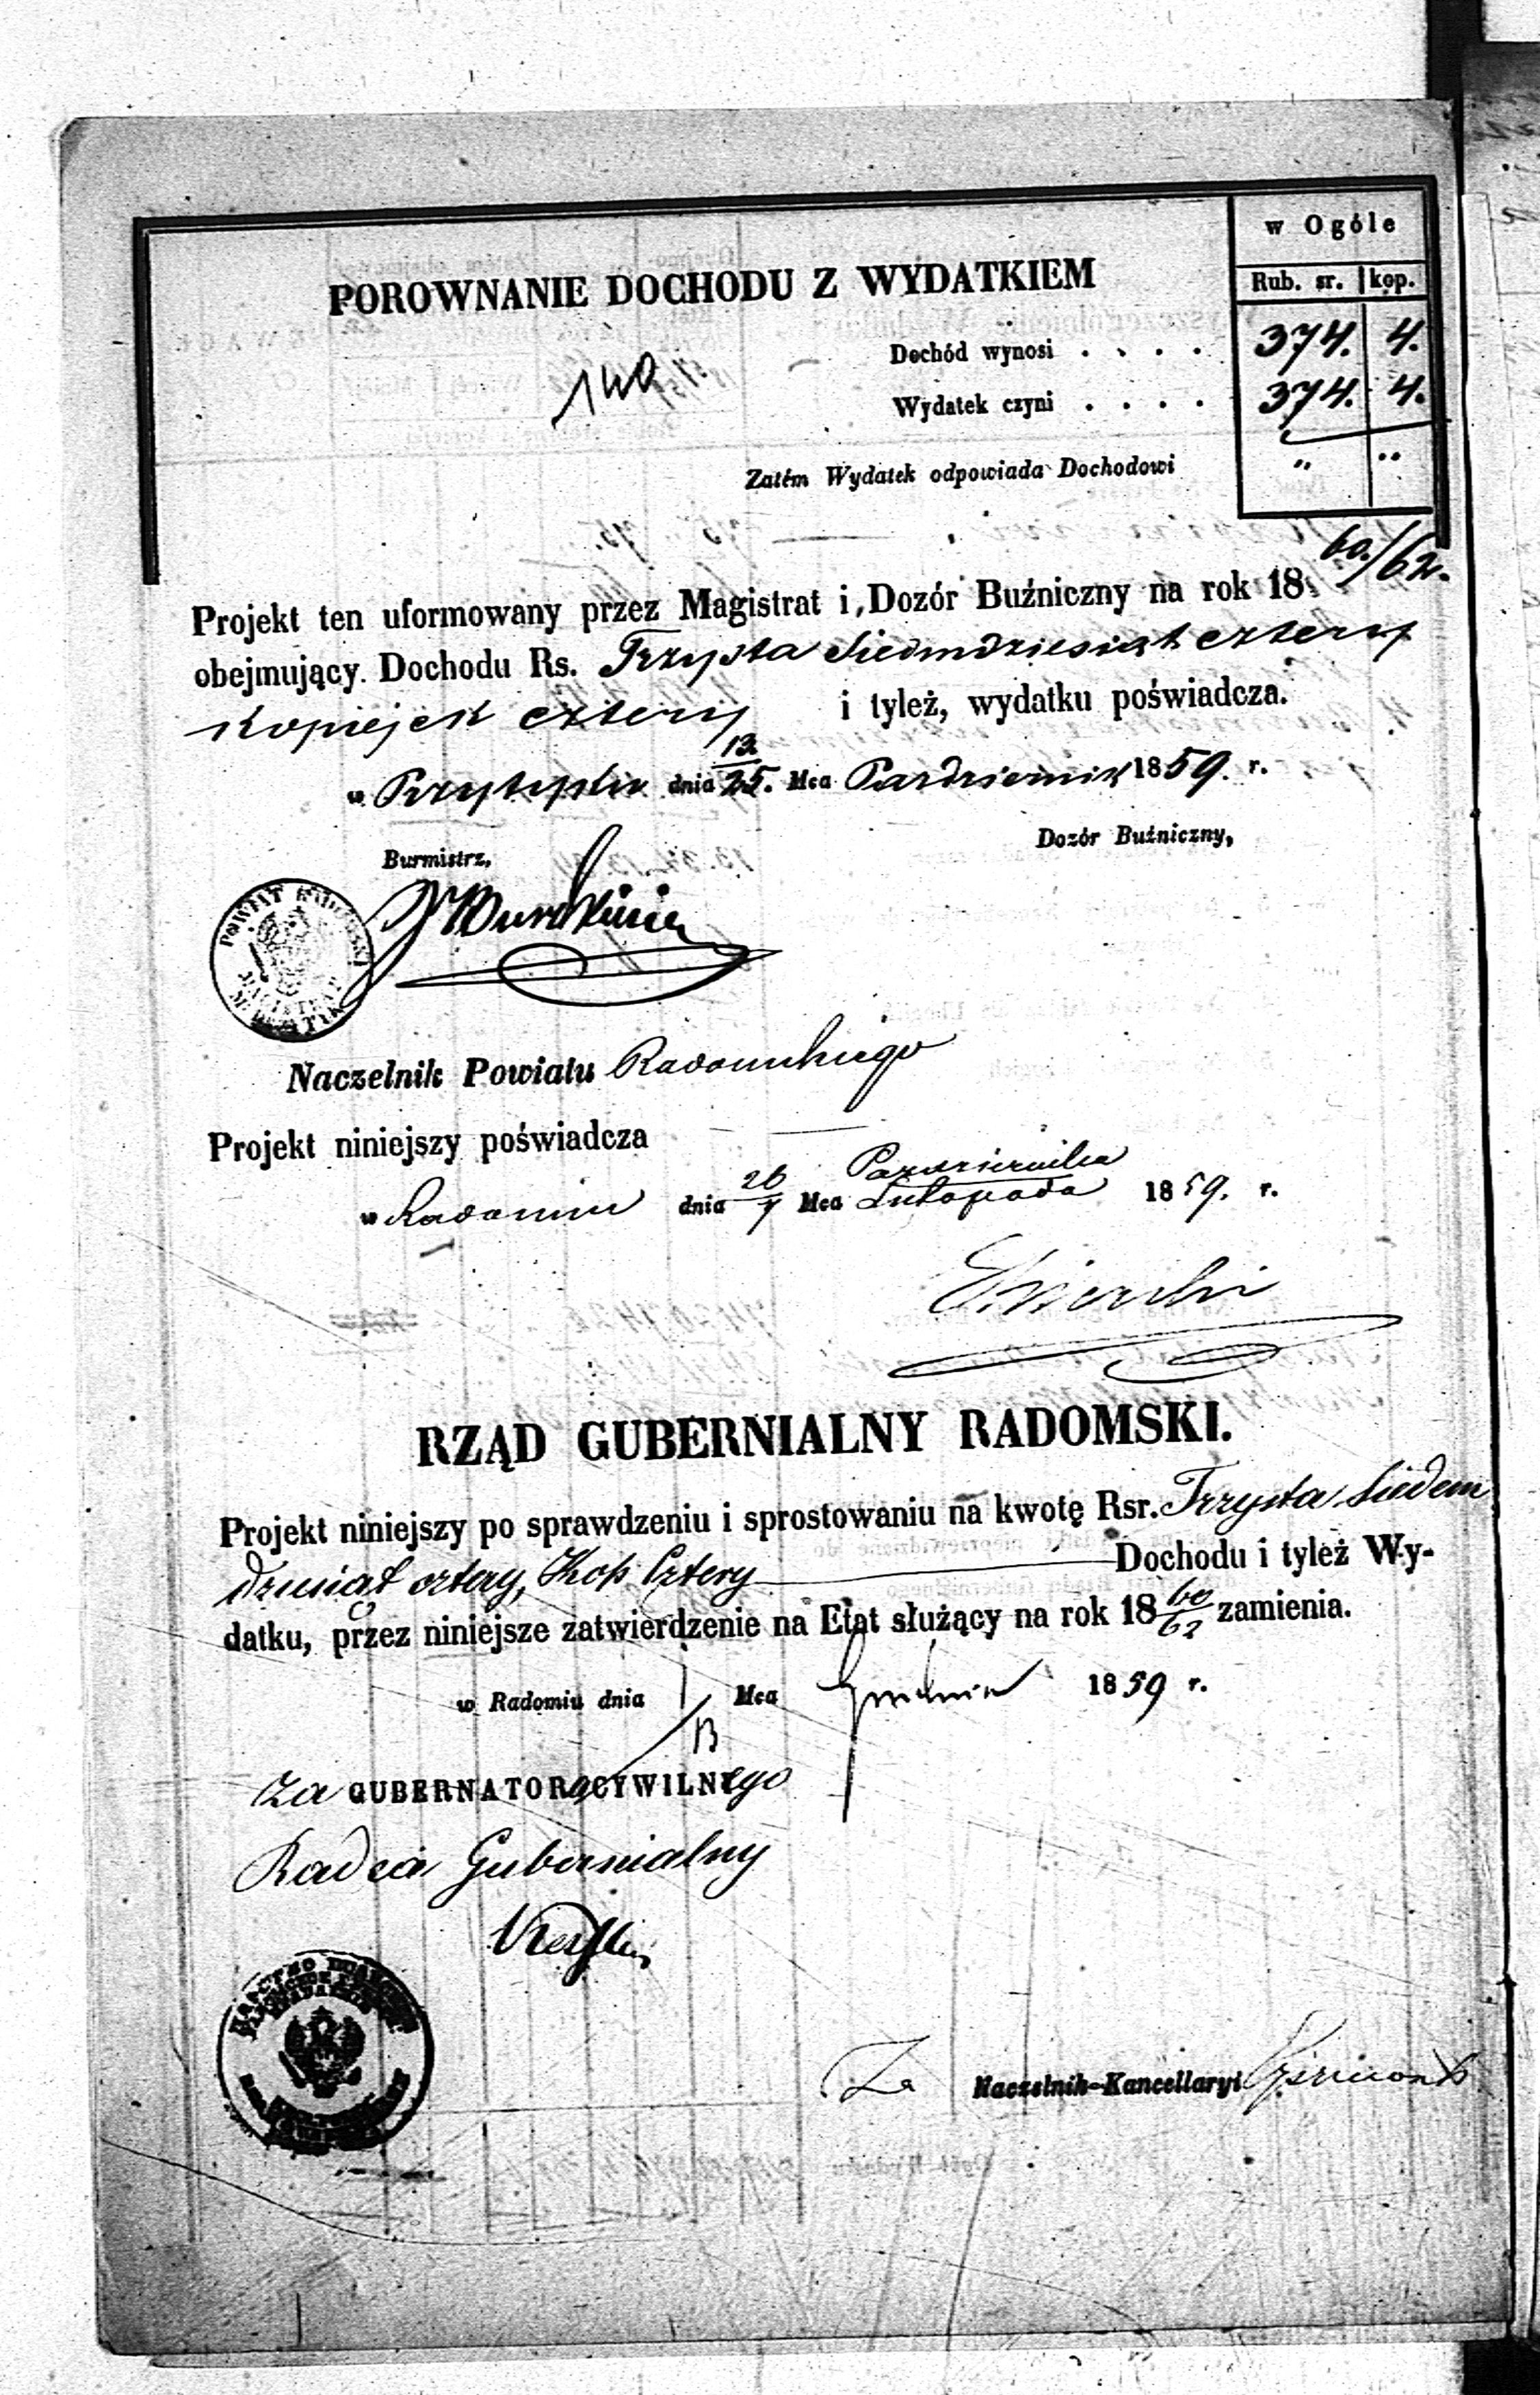 w Ogóle
POROWNANIE DOCHODU Z WYDATKIEM
Rub. sr. kop.
Dochód wynosi . . . . 374. 4.
Wydatek czyni . . . . 374. 4.
Zatém Wydatek odpowiada Dochodowi „ „
Projekt ten uformowany przez Magistrat i Dozór Buźniczny na rok 18 60/62.
obejmujący Dochodu Rs. Trzysta Siedmdziesiąt cztery
Kopiejek cztery i tyleż, wydatku poświadcza.
w Przytyku dnia 13/25. Mca Pazdziernik 1859. r.
Burmistrz,
Dozór Buźniczny,
POWIAT
Naczelnik Powiatu Radomskiego
Projekt niniejszy poświadcza
w Radomiu dnia 26/7 Mca Pazdziernika/Listopada 1859. r.
RZĄD GUBERNIALNY RADOMSKI.
Projekt niniejszy po sprawdzeniu i sprostowaniu na kwotę Rsr. Trzysta Siedem
dziesiąt cztery, Kop Cztery Dochodu i tyleż Wy-
datku, przez niniejsze zatwierdzenie na Etat służący na rok 18 60/62 zamienia.
w Radomiu dnia 1/13 Mca Grudnia 1859 r.
Za GUBERNATORA CYWILNego
Radca Gubernialny
Za Naczelnik-Kancellaryi